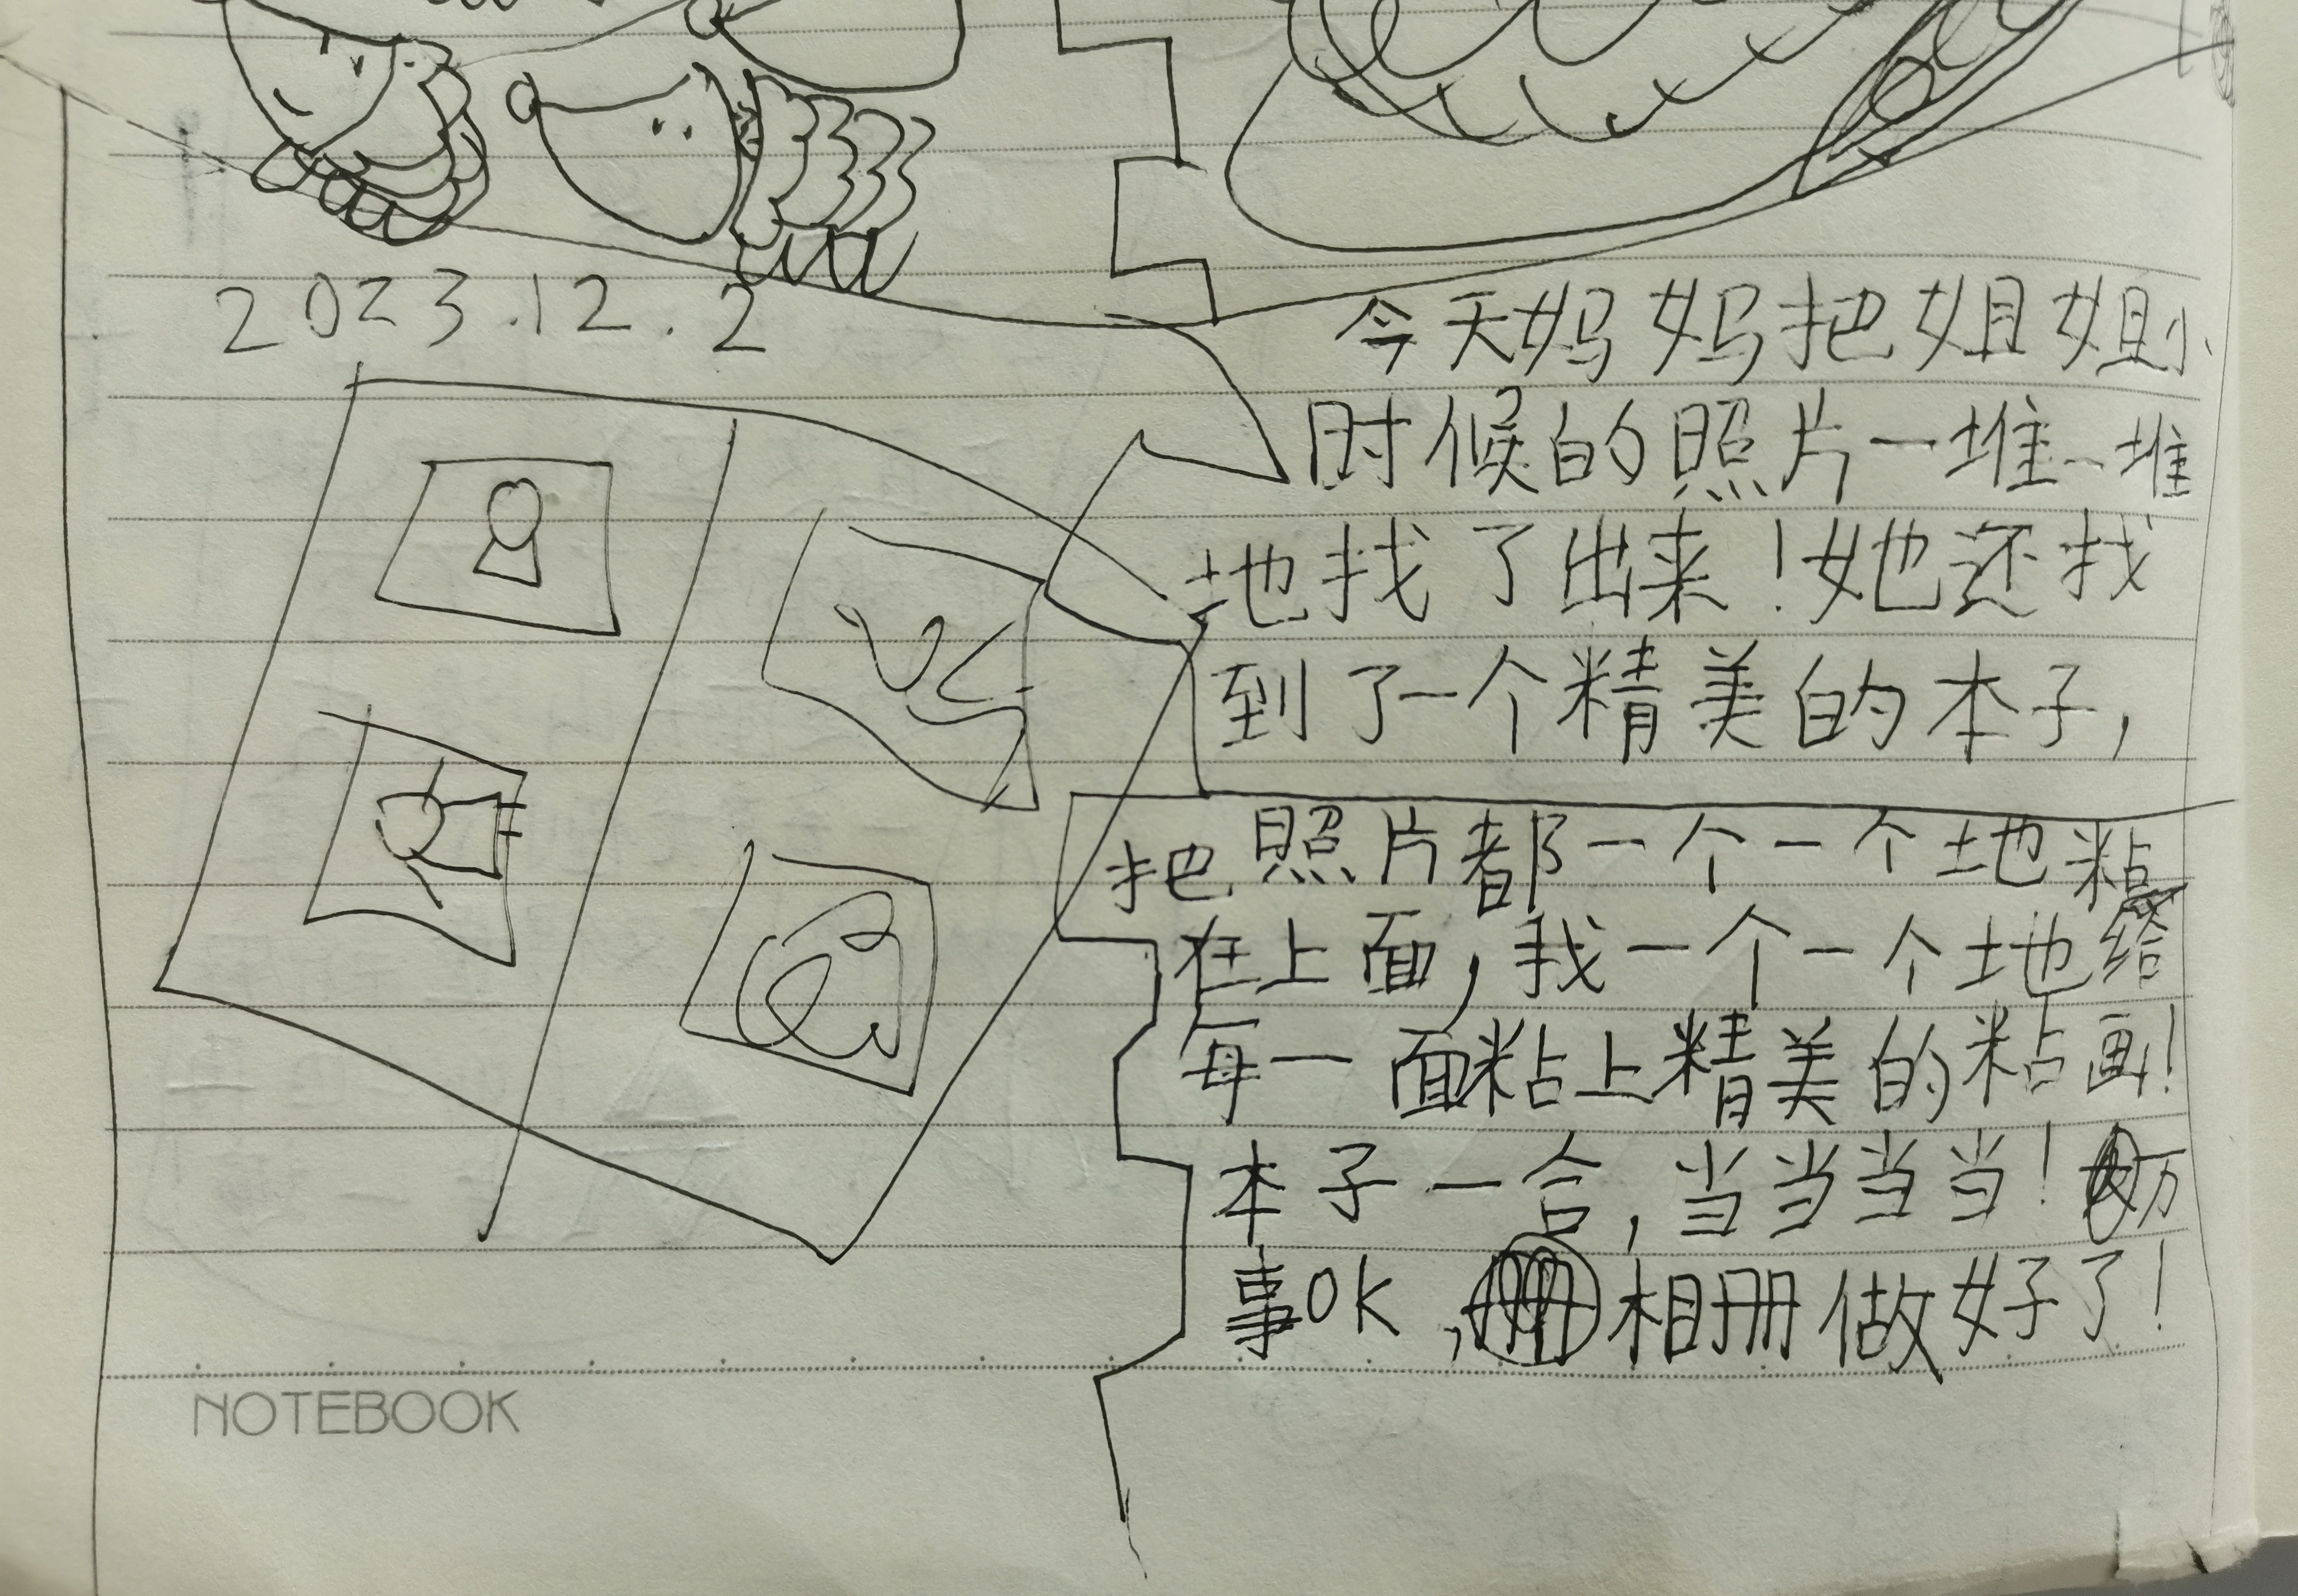 2023.12.2
今天妈妈把姐姐小
时候的照片一堆一堆
地找了出来！她还找
到了一个精美的本子，
把照片都一个一个地粘
在上面，我一个一个地给
每一面粘上精美的粘画！
本子一合，当当当当！万
事OK，相册做好了！
NOTEBOOK